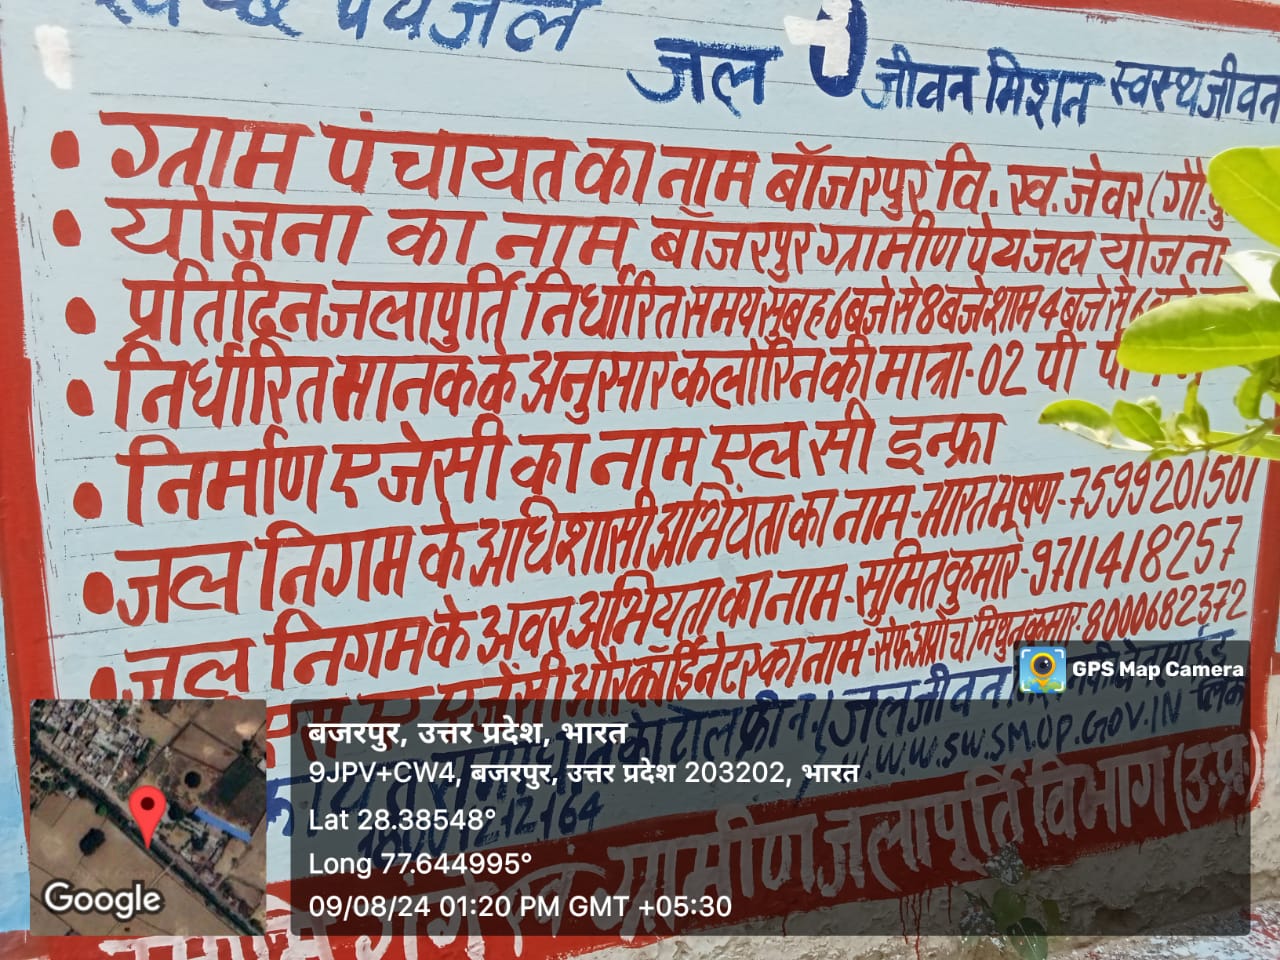 स्वच्छ पेयजल
जल जीवन मिशन स्वस्थ जीवन
• ग्राम पंचायत का नाम बॉजरपुर वि. ख. जेवर (गौ.बु
• योजना का नाम बॉजरपुर ग्रामीण पेयजल योजना
• प्रतिदिन जलापुर्ति निर्धारित समय सुबह 6 बजे से 8 बजे शाम 4 बजे से 6
• निर्धारित मानक के अनुसार कलोरिन की मात्रा - 02 पी पी
• निर्माण एजेसी का नाम एल सी इन्फ्रा
• जल निगम के अधिशासी अभियंता का नाम - भारत भूषण - 7599201501
• जल निगम के अवर अभियता का नाम - सुमित कुमार - 9711418257
एजेंसी और कॉर्डिनेटर का नाम - सैफ अप्रोच मिथुन कुमार - 8000682372
टोल फ्री नं. (जल जीवन
W.W.W.SW.SM.OP.GOV.IN
164
नमामि गंगे एवं ग्रामीण जलापूर्ति विभाग (उ.प्र.)
GPS Map Camera
बजरपुर, उत्तर प्रदेश, भारत
9JPV+CW4, बजरपुर, उत्तर प्रदेश 203202, भारत
Lat 28.38548°
Long 77.644995°
09/08/24 01:20 PM GMT +05:30
Google